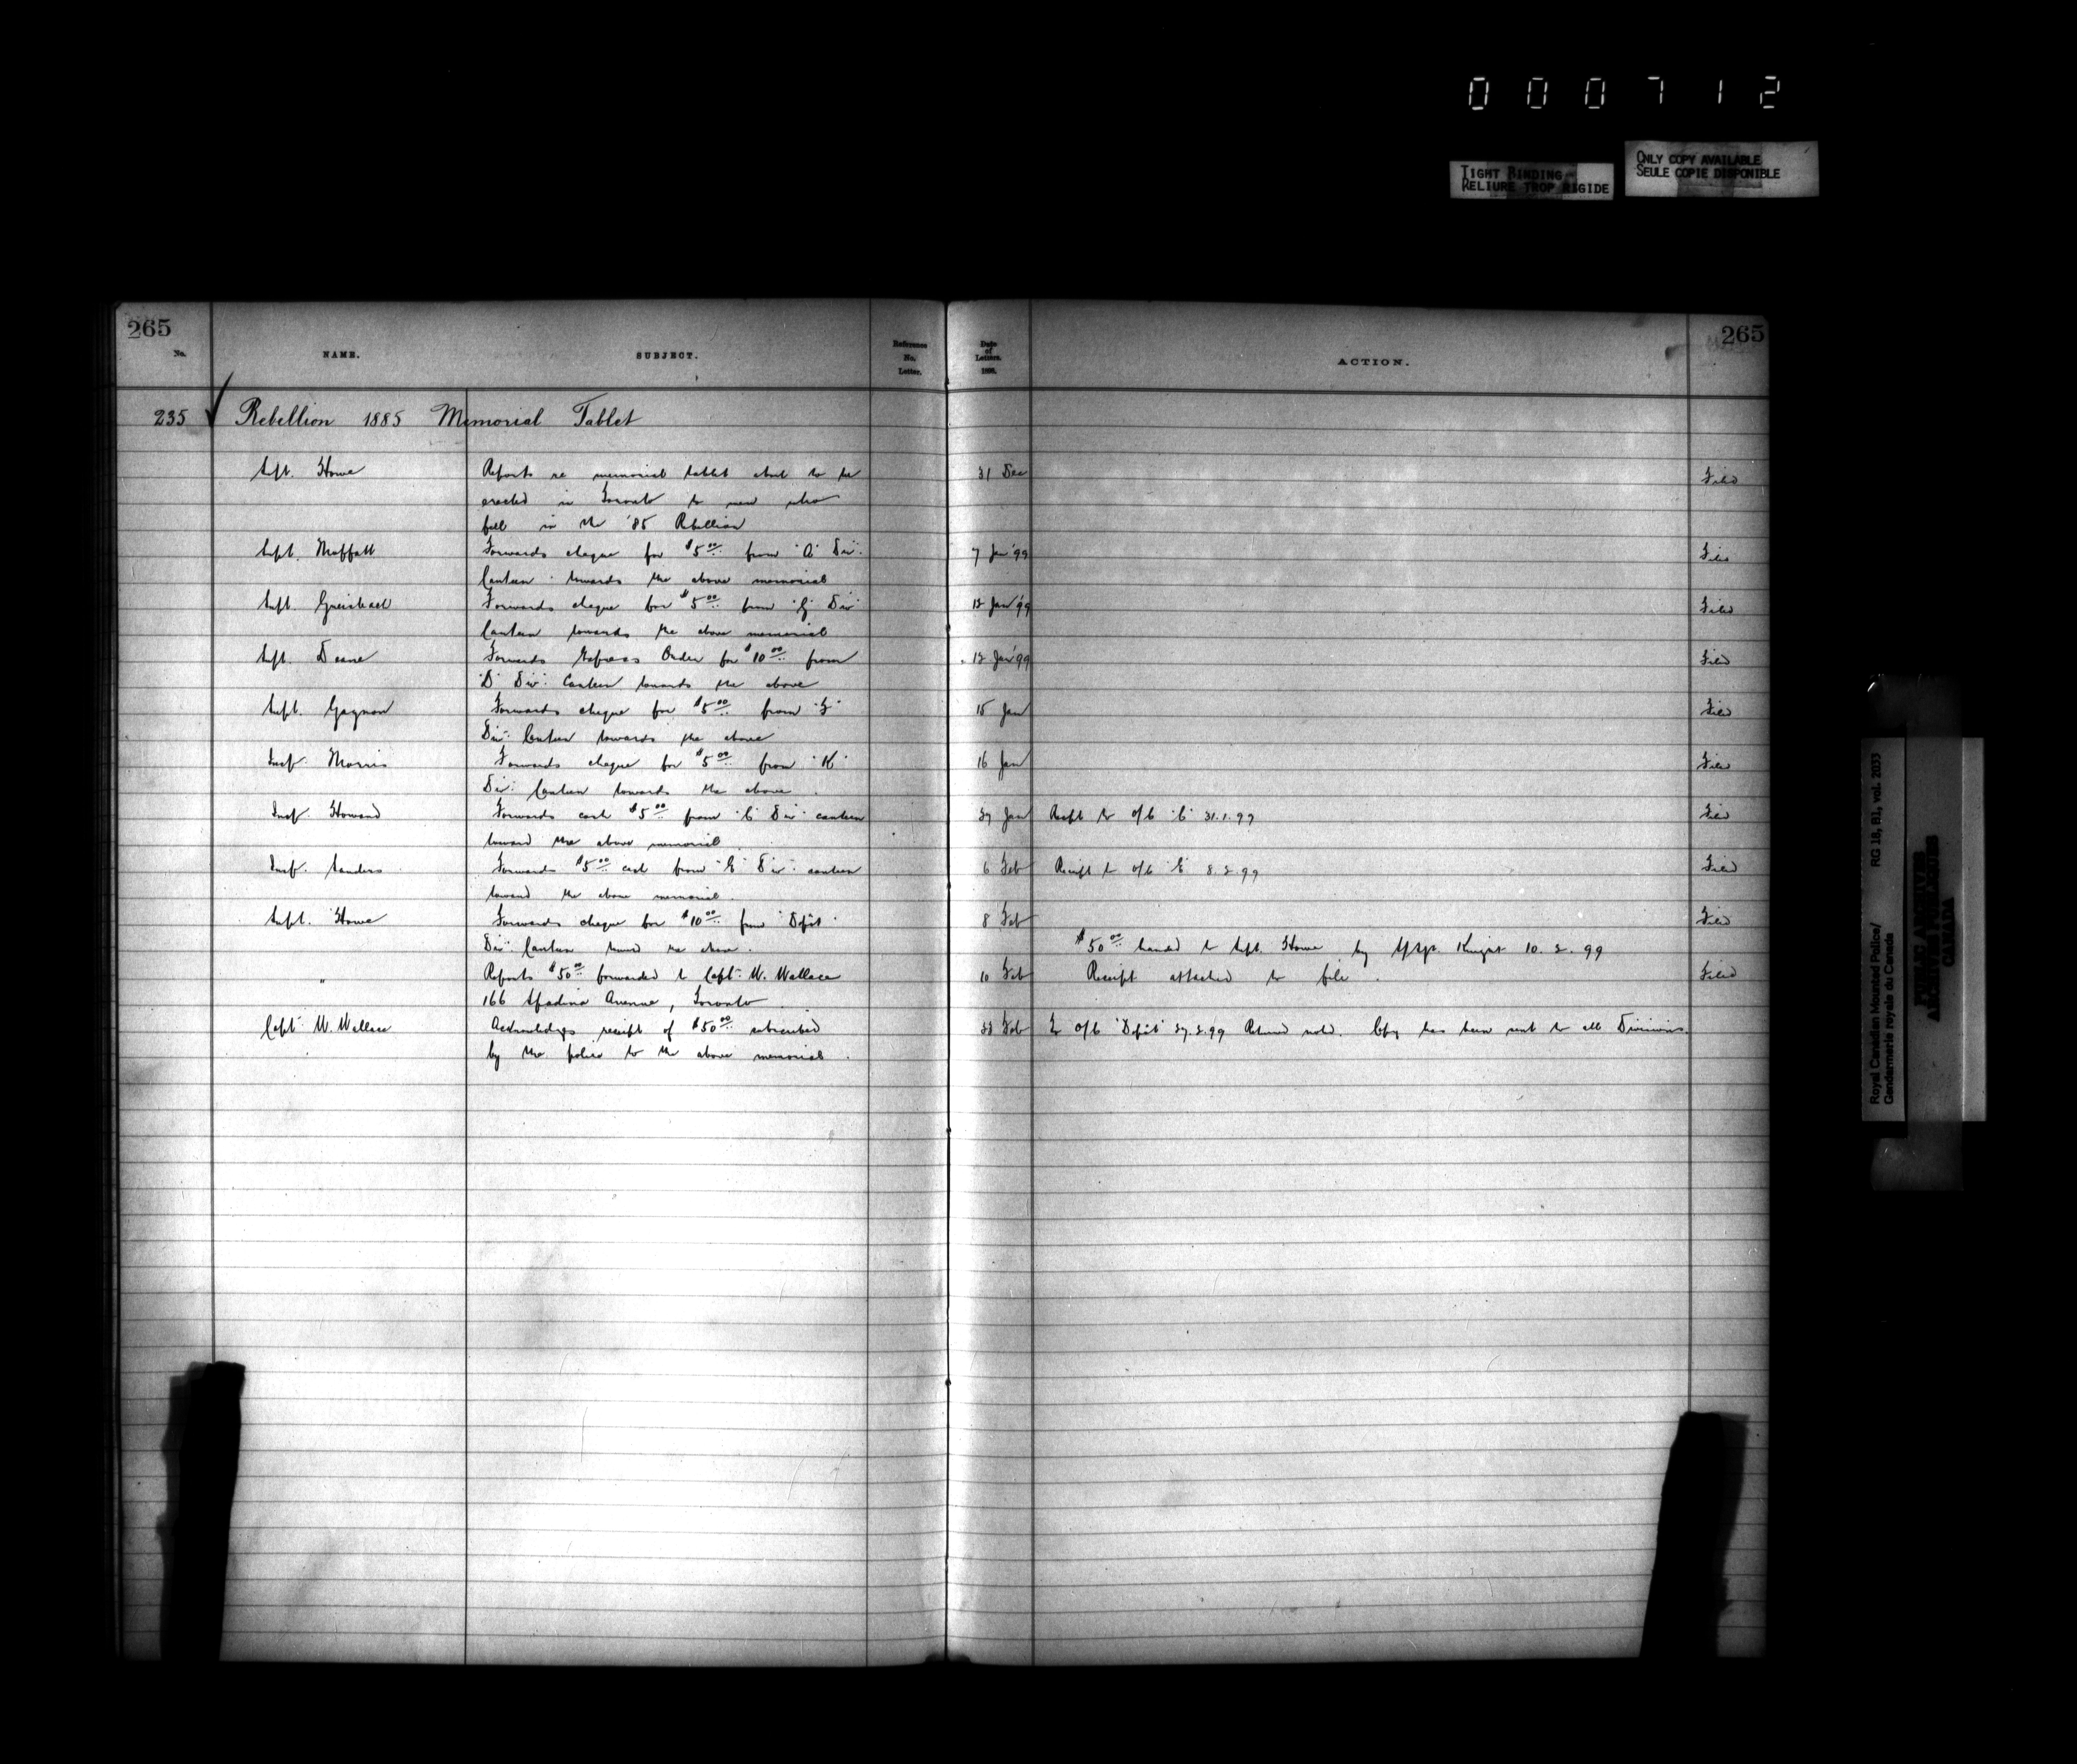 000712
TIGHT BINDING
RELIURE TROP RIGIDE
ONLY COPY AVAILABLE
SEULE COPIE DISPONIBLE
265
265
No.
NAME.
SUBJECT.
Reference No. Letter.
Date of Letters. 1898.
ACTION.
235 Rebellion 1885 Memorial Tablet
Supt. Howe Reports re memorial tablet about to be 31 Dec Filed
erected in Toronto to men who
fell in the '85 Rebellion
Supt. Moffatt Forwards cheque for $5.00 from "A" Div. 7 Jan '99 Filed
Canteen towards the above memorial
Supt. Griesbach Forwards cheque for $5.00 from "G" Div 12 Jan '99 Filed
Canteen towards the above memorial
Supt. Deane Forwards Express Order for $10.00 from 12 Jan '99 Filed
"D" Div. Canteen towards the above
Supt. Gagnon Forwards cheque for $5.00 from "F" 15 Jan Filed
Div. Canteen towards the above
Insp. Morris Forwards cheque for $5.00 from "K" 16 Jan Filed
Div. Canteen towards the above
Insp. Howard Forwards cash $5.00 from "C" Div canteen Jan Receipt to o/c "C" 31.1.99 Filed
toward the above memorial
Insp. Sanders Forwards $5.00 cash from "E" Div. canteen 6 Feb Receipt to o/c "E" 8.2.99 Filed
toward the above memorial.
Supt. Howe Forwards cheque for $10.00 from "Depôt" 8 Feb Filed
Div. Canteen toward the above.
$50.00 handed to Supt. Howe by Insp. Knight 10.2.99
" Reports $50.00 forwarded to Capt. W. Wallace 10 Feb Receipt attached to file. Filed
166 Spadina Avenue, Toronto.
Capt. W. Wallace Acknowledges receipt of $50.00 subscribed Feb To o/c "Depôt" 27.2.99 Returned noted. Copy has been sent to all Divisions.
by the police to the above memorial.
Royal Canadian Mounted Police/ RG 18, B1, vol. 2033
Gendarmerie royale du Canada
PUBLIC ARCHIVES
ARCHIVES PUBLIQUES
CANADA